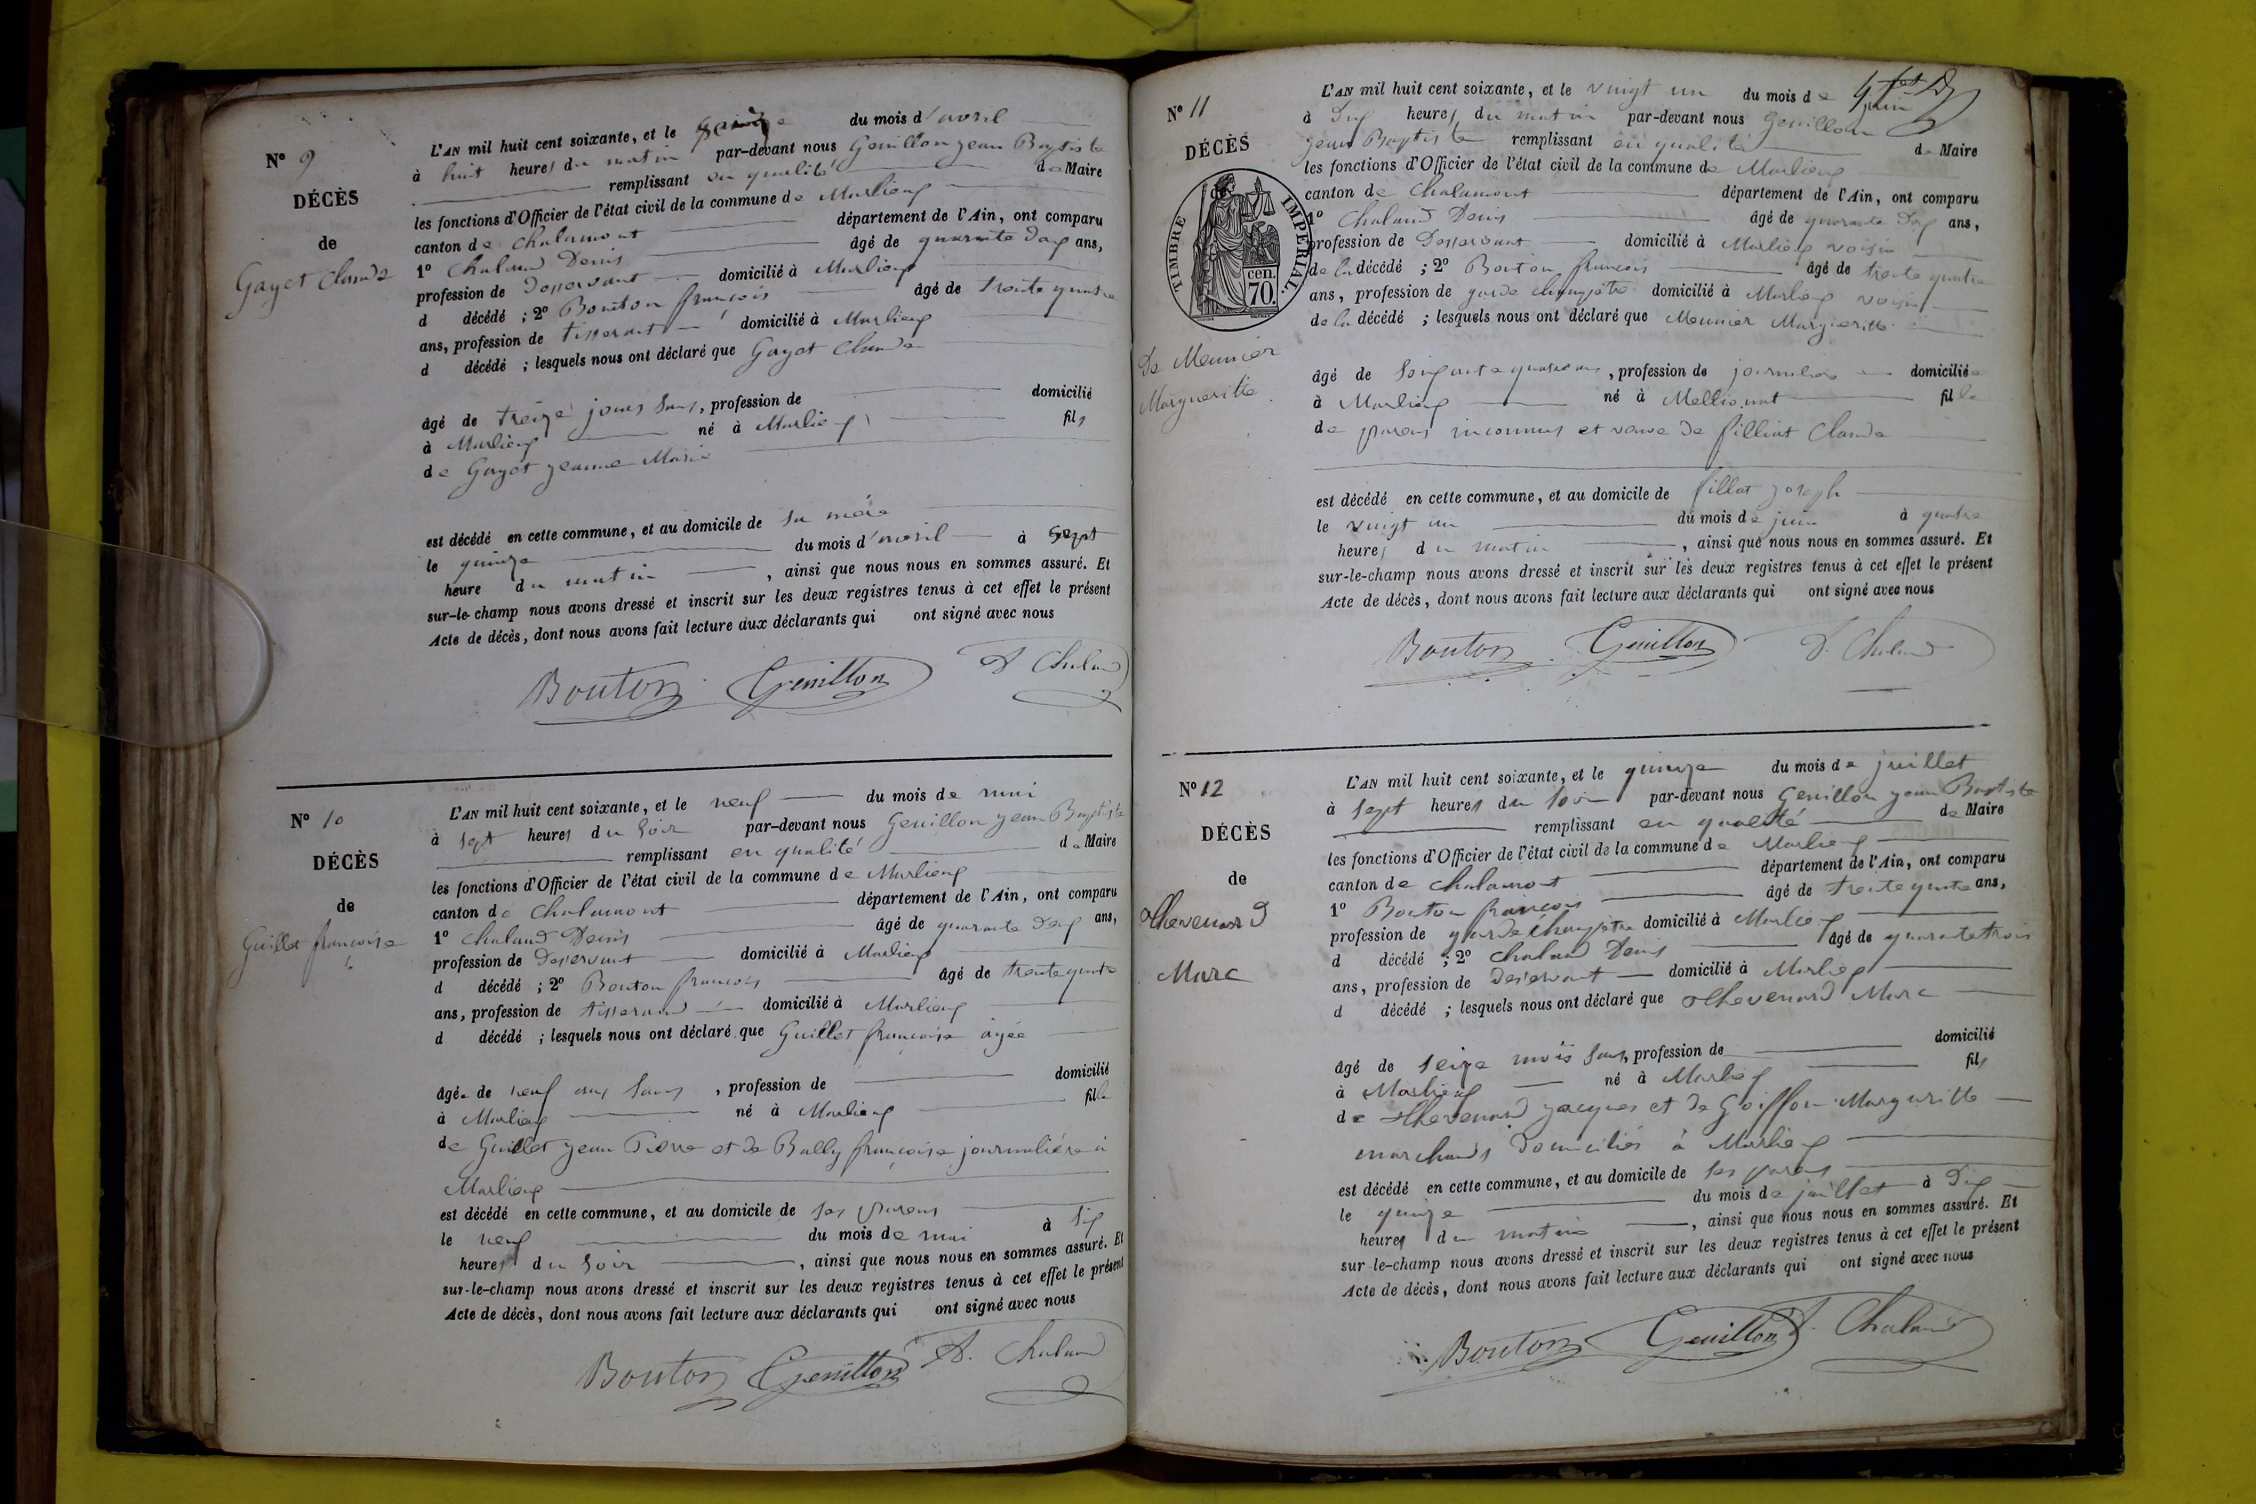 N° 9
DÉCÈS
de
Gayet Claude
L'AN mil huit cent soixante, et le quinze du mois d'avril
à huit heures du matin par-devant nous Genillon jean Baptiste
remplissant en qualité de Maire
les fonctions d'Officier de l'état civil de la commune de Marlieux
canton de Chalamont département de l'Ain, ont comparu
1° Chaland Denis âgé de quarante deux ans,
profession de Desservant domicilié à Marlieux
d décédé ; 2° Bouton françois âgé de trente quatre
ans, profession de tisserant domicilié à Marlieux
d décédé ; lesquels nous ont déclaré que Gayet Claude
âgé de treize jours , profession de domicilié
à Marlieux né à Marlieux fils
de Gayet jeanne Marie
est décédé en cette commune, et au domicile de sa mère
le quinze du mois d'avril à sept
heure du matin , ainsi que nous nous en sommes assuré. Et
sur-le-champ nous avons dressé et inscrit sur les deux registres tenus à cet effet le présent
Acte de décès, dont nous avons fait lecture aux déclarants qui ont signé avec nous
Bouton Genillon D Chaland
N° 10
DÉCÈS
de
Guillet françoise
L'AN mil huit cent soixante, et le neuf du mois de mai
à sept heures du soir par-devant nous Genillon jean Baptiste
remplissant en qualité de Maire
les fonctions d'Officier de l'état civil de la commune de Marlieux
canton de Chalamont département de l'Ain, ont comparu
1° Chaland Denis âgé de quarante deux ans,
profession de Desservant domicilié à Marlieux
d décédé ; 2° Bouton françois âgé de trente quatre
ans, profession de tisserand domicilié à Marlieux
d décédé ; lesquels nous ont déclaré que Guillet françoise âgée
âgée de neuf ans , profession de domicilié
à Marlieux né à Marlieux fille
de Guillet jean Pierre et de Bally françoise journalière à
Marlieux
est décédé en cette commune, et au domicile de ses parens
le neuf du mois de mai à six
heures du soir , ainsi que nous nous en sommes assuré. Et
sur-le-champ nous avons dressé et inscrit sur les deux registres tenus à cet effet le présent
Acte de décès, dont nous avons fait lecture aux déclarants qui ont signé avec nous
Bouton Genillon D. Chaland
N° 11
DÉCÈS
de
TIMBRE IMPÉRIAL.
70 cen.
De Meunier
Margueritte
L'AN mil huit cent soixante, et le vingt un du mois de juin
à dix heures du matin par-devant nous Genillon
jean Baptiste remplissant en qualité de Maire
les fonctions d'Officier de l'état civil de la commune de Marlieux
canton de Chalamont département de l'Ain, ont comparu
1° Chaland Denis âgé de quarante deux ans,
profession de Desservant domicilié à Marlieux voisin
de la décédé ; 2° Bouton françois âgé de trente quatre
ans, profession de garde champêtre domicilié à Marlieux voisin
de la décédé ; lesquels nous ont déclaré que Meunier Margueritte
âgé de soixante quatre ans, profession de journalière domiciliée
à Marlieux né à Mellionnat fille
de parens inconnus et veuve de filliat Claude
est décédé en cette commune, et au domicile de filliat joseph
le vingt un du mois de juin à quatre
heures du matin , ainsi que nous nous en sommes assuré. Et
sur-le-champ nous avons dressé et inscrit sur les deux registres tenus à cet effet le présent
Acte de décès, dont nous avons fait lecture aux déclarants qui ont signé avec nous
Bouton Genillon D. Chaland
N° 12
DÉCÈS
de
Thevenard
Marc
L'AN mil huit cent soixante, et le quinze du mois de juillet
à sept heures du soir par-devant nous Genillon jean Baptiste
remplissant en qualité de Maire
les fonctions d'Officier de l'état civil de la commune de Marlieux
canton de Chalamont département de l'Ain, ont comparu
1° Bouton françois âgé de trente quatre ans,
profession de garde champêtre domicilié à Marlieux
d décédé ; 2° Chaland Denis âgé de quarante trois
ans, profession de Desservant domicilié à Marlieux
d décédé ; lesquels nous ont déclaré que Thevenard Marc
âgé de seize mois , profession de domicilié
à Marlieux né à Marlieux fils
de Thevenard jacques et de Goiffon Margueritte
marchands domiciliés à Marlieux
est décédé en cette commune, et au domicile de ses parens
le quinze du mois de juillet à dix
heures du matin , ainsi que nous nous en sommes assuré. Et
sur-le-champ nous avons dressé et inscrit sur les deux registres tenus à cet effet le présent
Acte de décès, dont nous avons fait lecture aux déclarants qui ont signé avec nous
Bouton Genillon D. Chaland